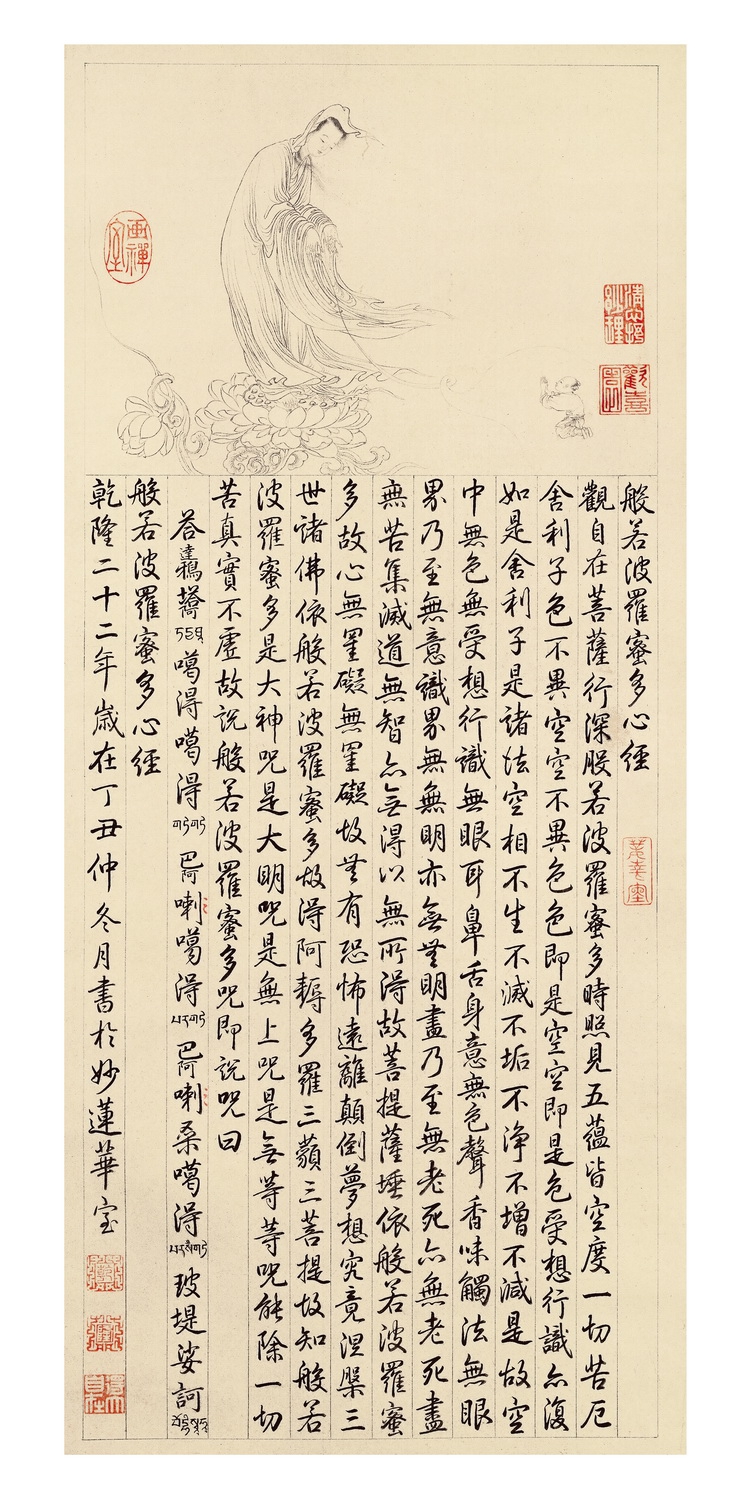 般若波羅蜜多心經
觀自在菩薩行深般若波羅蜜多時照見五蘊皆空度一切苦厄
舍利子色不異空空不異色色即是空空即是色受想行識亦復
如是舍利子是諸法空相不生不滅不垢不淨不增不減是故空
中無色無受想行識無眼耳鼻舌身意無色聲香味觸法無眼
界乃至無意識界無無明亦無無明盡乃至無老死亦無老死盡
無苦集滅道無智亦無得以無所得故菩提薩埵依般若波羅蜜
多故心無罣礙無罣礙故無有恐怖遠離顛倒夢想究竟涅槃三
世諸佛依般若波羅蜜多故得阿耨多羅三藐三菩提故知般若
波羅蜜多是大神呪是大明呪是無上呪是無等等呪能除一切
苦真實不虛故說般若波羅蜜多呪即說呪曰
噶得噶得巴阿喇噶得巴阿喇桑噶得玻堤娑訶
般若波羅蜜多心經
乾隆二十二年歲在丁丑仲冬月書於妙蓮華室
画禪室